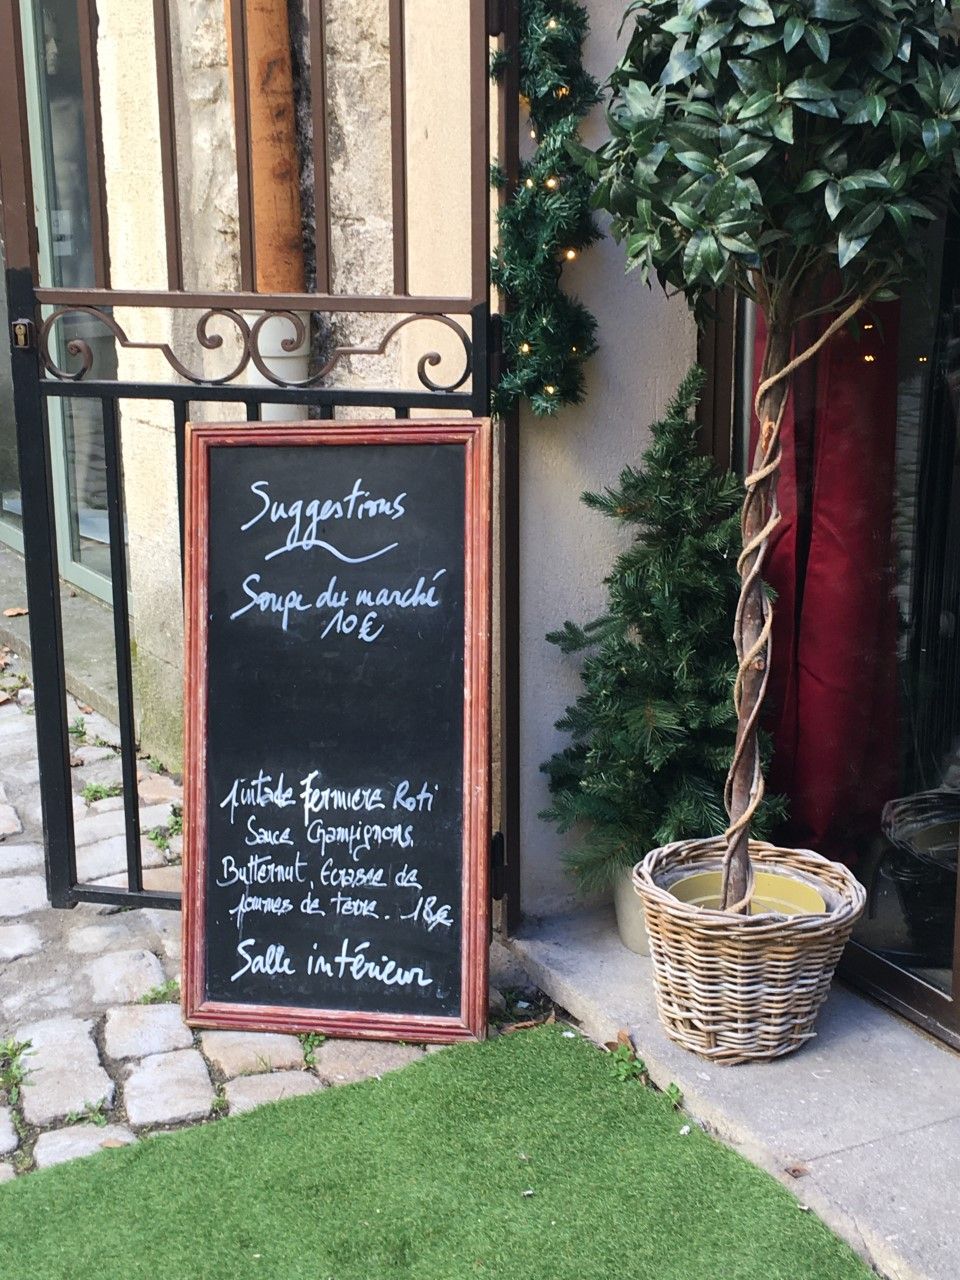 Suggestions
Soupe du marché
10€
Pintade Fermiere Roti
Sauce Champignons
Butternut, Ecrasee de
pommes de terre. 18€
Salle intérieur